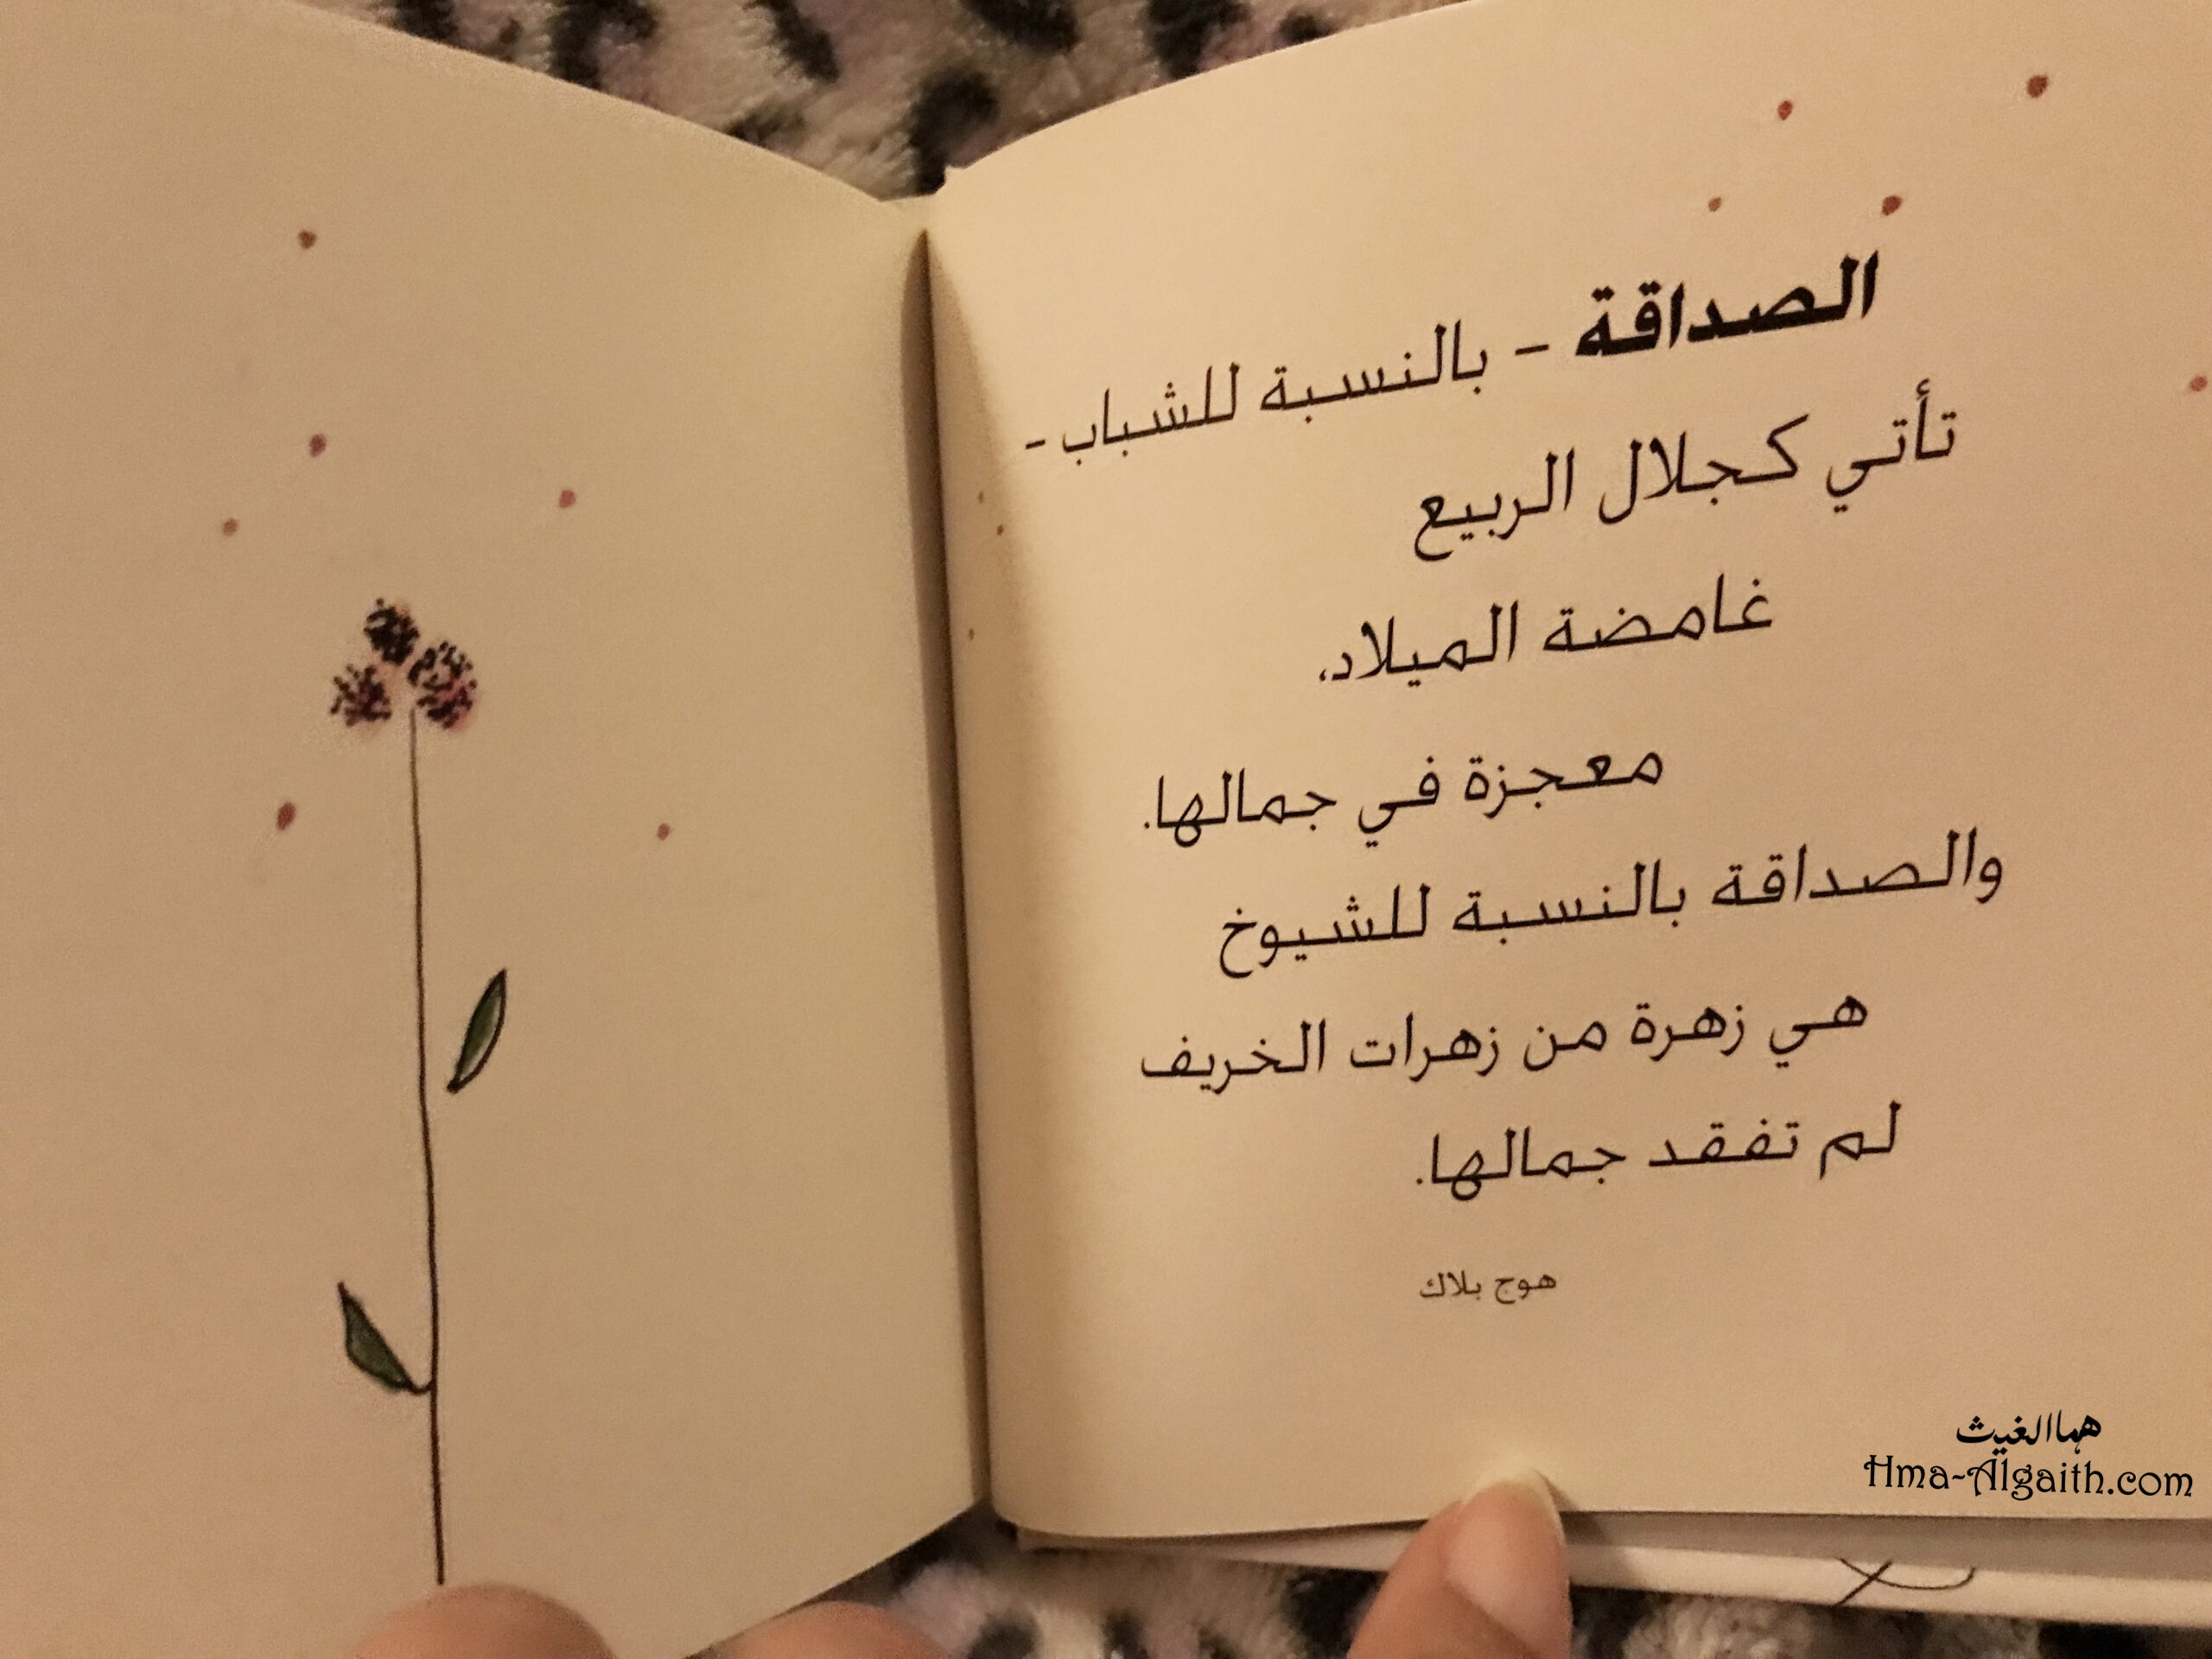 الصداقة - بالنسبة للشباب -
تأتي كجلال الربيع
غامضة الميلاد،
معجزة في جمالها.
والصداقة بالنسبة للشيوخ
هي زهرة من زهرات الخريف
لم تفقد جمالها.
هوج بلاك
هما الغيث
Hma-Algaith.com